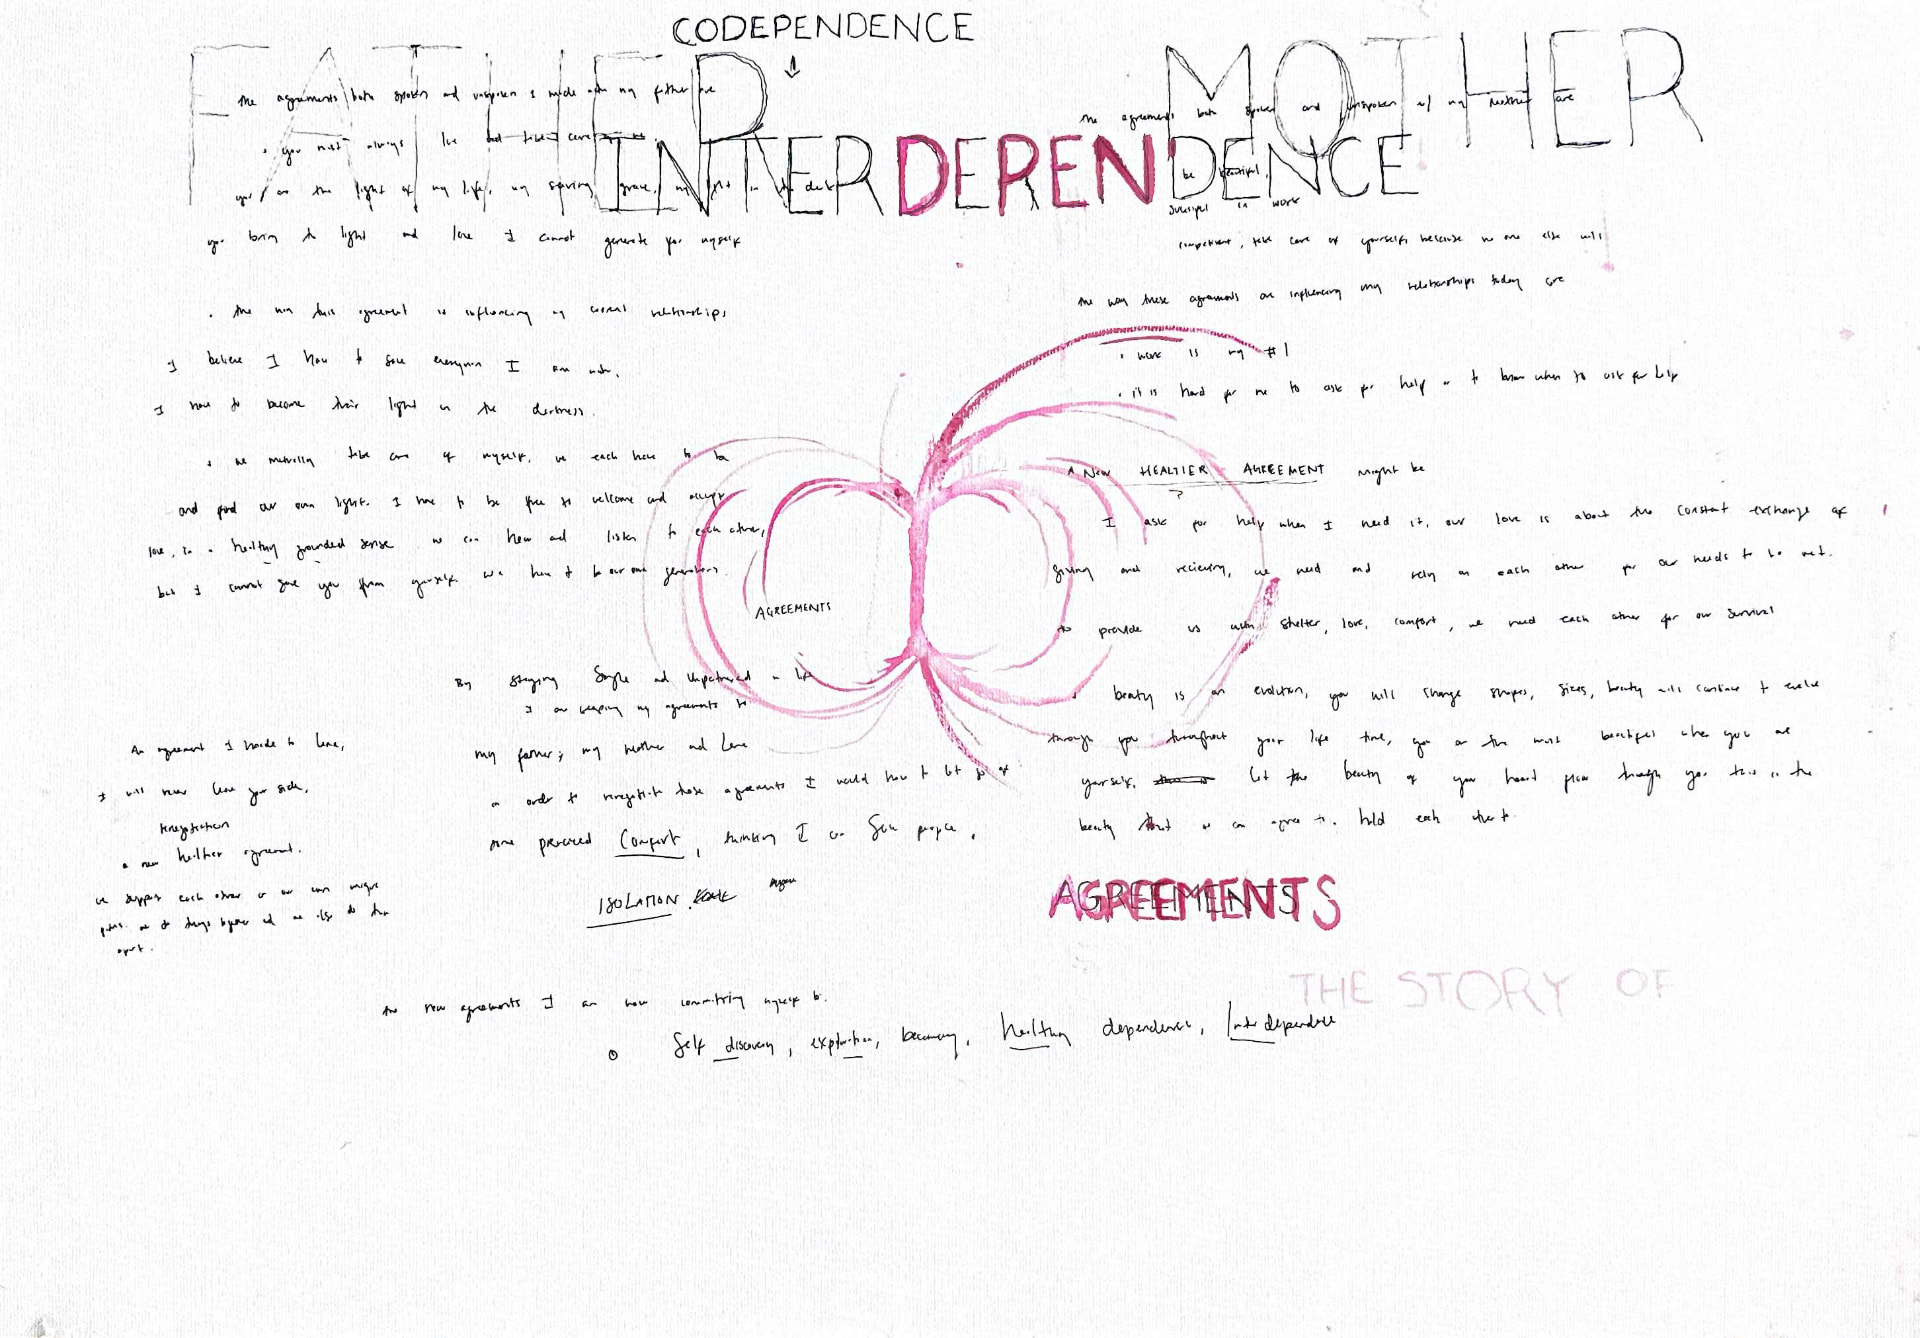 CODEPENDENCE
FATHER
MOTHER
INTERDEPENDENCE
the agreements both spoken and unspoken I made with my father are
you must always be
you are the light of my life, my saving grace, my light in the dark
you bring the light and love I cannot generate for myself
the way this agreement is influencing my current relationships
I believe I have to save everyone I am with.
I have to become their light in the darkness.
we mutually take care of myself, we each have to be
and find our own light. I have to be free to welcome and accept
love, in a healthy grounded sense we can hear and listen to each other,
but I cannot save you from yourself. we have to be our own generators.
The agreements both spoken and unspoken w/ my mother are
be beautiful.
successful in work
competent, take care of yourself because no one else will
the way these agreements are influencing my relationships today are
work is my #1
it is hard for me to ask for help or to know when to ask for help
A New HEALTIER AGREEMENT might be
?
I ask for help when I need it, our love is about the constant exchange of
giving and recieving, we need and rely on each other for our needs to be met.
to provide us with shelter, love, comfort, we need each other for our survival
beauty is an evolution, you will change shapes, sizes, beauty will continue to evolve
through you throughout your life time, you are the most beautiful when you are
yourself. let the beauty of your heart flow through you this is the
beauty that we can agree to. hold each other to.
AGREEMENTS
By staying single and unpartnered in life
I am keeping my agreements to
my father, my mother and Lena
in order to renegotiate those agreements I would have to let go of
some perceived Comfort, thinking I can save people.
ISOLATION.
An agreement I made to Lena,
I will never leave your side,
renegotiation
a new healthier agreement.
we support each other in our own unique
paths. we do things together and we also do them
apart.
AGREEMENTS
THE STORY OF
the new agreements I am now committing myself to.
Self discovery, exploration, becoming, healthy dependence, Interdependence